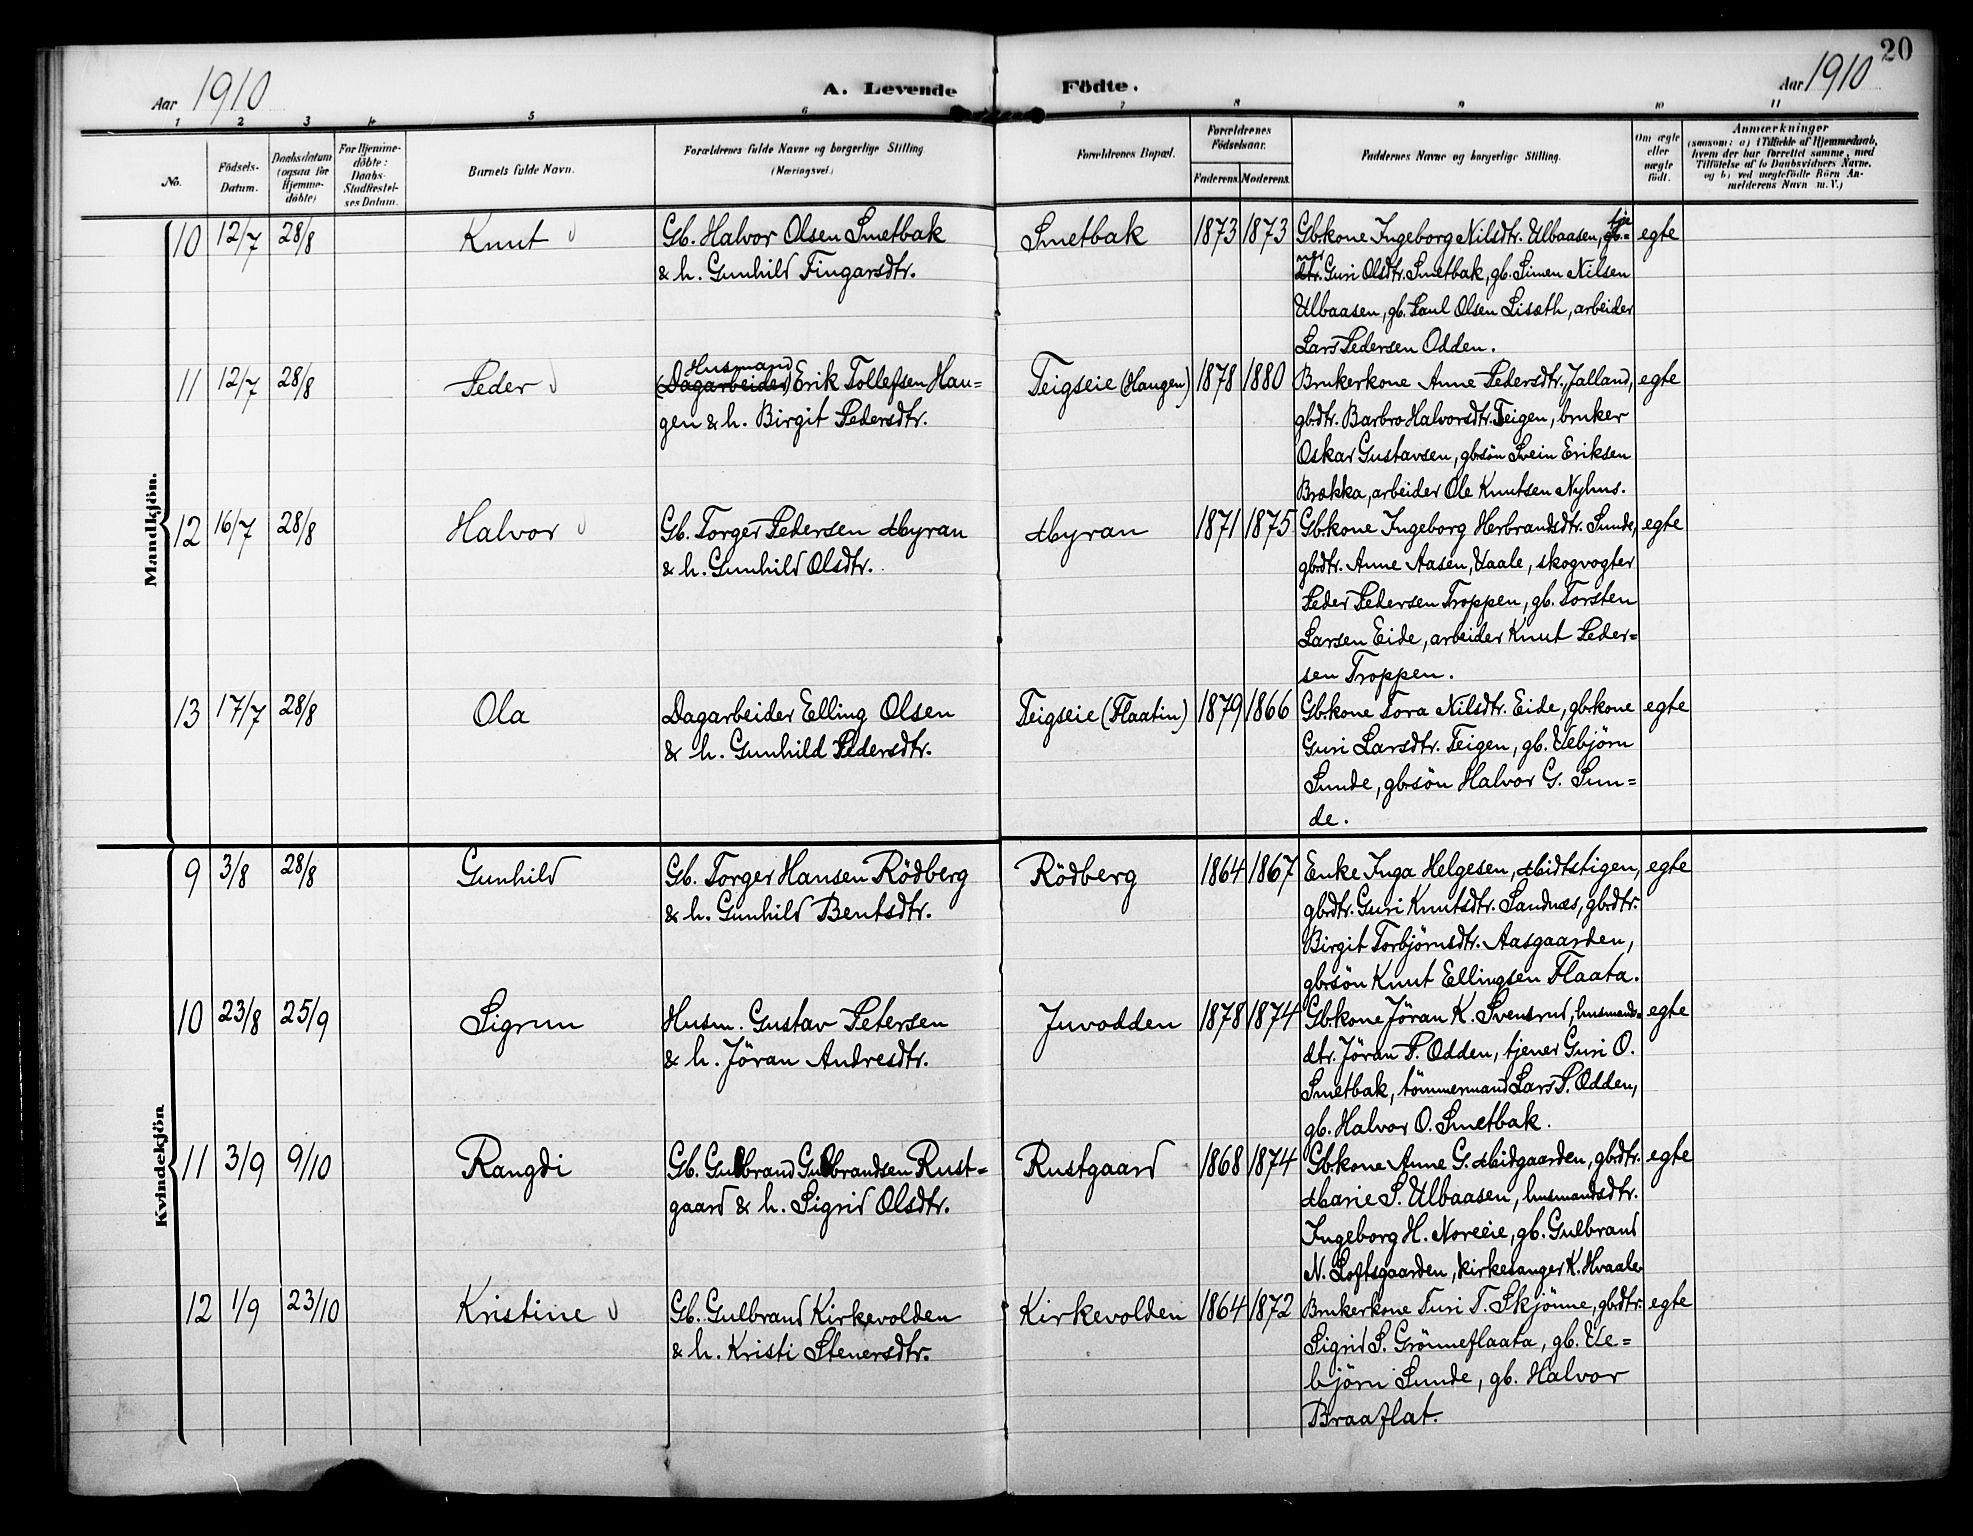 20
Aar 1910 A. Levende Födte. Aar 1910
1 2 3 4 5 6 7 8 9 10 11
No.
Födsels-
Datum.
Daabsdatum
(ogsaa for
Hjemme-
döbte)
For Hjemme-
döbte:
Daabs-
Stadfæstel-
ses Datum.
Barnets fulde Navn.
Forældrenes fulde Navne og borgerlige Stilling
(Næringsvei.)
Forældrenes Bopæl.
Forældrenes
Födselsaar.
Faderens. Moderens.
Faddernes Navne og borgerlige Stilling.
Om ægte
eller
uægte
födt.
Anmærkninger
(saasom: a) i Tilfælde af Hjemmedaab,
hvem der har forrettet samme, med
Tilföielse af to Daabsvidners Navne,
og b) ved uægtefödte Börn An-
melderens Navn m. V.)
Mandkjön.
10 12/7 28/8 Knut Gb. Halvor Olsen Smetbak Smetbak 1873 1873 Gbkone Ingeborg Nilsdtr. Ulbaasen, tje egte
& h. Gunhild Fingarsdtr. ner Guri Olsdtr. Smetbak, gb. Simen Nilsen
Ulbaasen, gb. Paul Olsen Liseth, arbeider
Lars Pedersen Odden.
Husmand
11 12/7 28/8 Peder (Dagarbeider) Erik Tollefsen Hau- Teigseie (Haugen) 1878 1880 Brukerkone Anne Pedersdtr. Jalland, egte
gen & h. Birgit Pedersdtr. gbdtr. Barbro Halvorsdtr. Teigen, bruker
Oskar Gustavsen, gbsön Svein Eriksen
Brækka, arbeider Ole Knutsen Nyhus.
12 16/7 28/8 Halvor Gb. Torger Pedersen Myran Myran 1871 1875 Gbkone Ingeborg Herbrandsdtr. Sunde, egte
& h. Gunhild Olsdtr. gbdtr. Anne Aasen, Vaale, skogvogter
Peder Pedersen Troppen, gb. Torsten
Larsen Eide, arbeider Knut Peder-
sen Troppen.
13 17/7 28/8 Ola Dagarbeider Elling Olsen Teigseie (Flaatin) 1879 1866 Gbkone Tora Nilsdtr. Eide, gbkone egte
& h. Gunhild Pedersdtr. Guri Larsdtr. Teigen, gb. Vebjörn
Sunde, gbsön Halvor G. Sun-
de.
Kvindekjön
9 3/8 28/8 Gunhild Gb. Torger Hansen Rödberg Rödberg 1864 1867 Enke Inga Helgesen, Midtstigen, egte
& h. Gunhild Bentsdtr. gbdtr. Guri Knutsdtr. Sandnæs, gbdtr.
Birgit Torbjörnsdtr. Aasgaarden,
gbsön Knut Ellingsen Flaata.
10 23/8 25/9 Sigrun Husm. Gustav Petersen Juvodden 1878 1874 Gbkone Jöran K. Svensrud, husmands- egte
& h. Jöran Andresdtr. dtr. Jöran P. Odden, tjener Guri O.
Smetbak, tömmermand Lars P. Odden,
gb. Halvor O. Smetbak.
11 3/9 9/10 Rangdi Gb. Gulbrand Gulbrandsen Rust- Rustgaard 1868 1874 Gbkone Anne G. Midgaarden, gbdtr. egte
gaard & h. Sigrid Olsdtr. Marie S. Ulbaasen, husmandsdtr.
Ingeborg H. Noreeie, gb. Gulbrand
N. Loftsgaarden, kirkesanger K. Hvaale.
12 1/9 23/10 Kristine Gb. Gulbrand Kirkevolden Kirkevolden 1864 1872 Brukerkone Turi T. Skjönne, gbdtr. egte
& h. Kristi Stenersdtr. Sigrid S. Grönneflaata, gb. Ve-
björn Sunde, gb. Halvor
Braaflat.